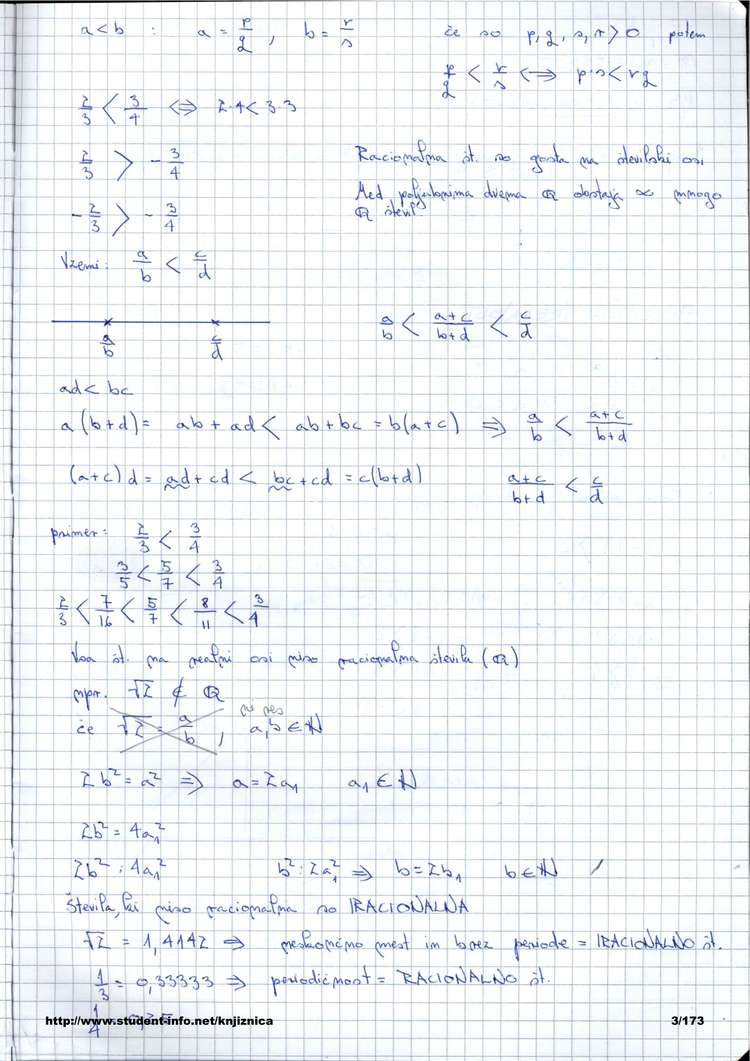 a < b : a = p/q , b = r/s če so p, q, s, r > 0 potem
p/q < r/s ⟺ p·s < rq
2/3 < 3/4 ⟺ 2·4 < 3·3
2/3 > - 3/4 Racionalna št. so gosta na številski osi
Med poljubnima dvema Q obstaja ∞ mnogo
- 2/3 > - 3/4 Q števil
Vzemi: a/b < c/d
a/b c/d a/b < a+c/b+d < c/d
ad < bc
a(b+d) = ab + ad < ab + bc = b(a+c) ⟹ a/b < a+c/b+d
(a+c)d = ad + cd < bc + cd = c(b+d) a+c/b+d < c/d
primer: 2/3 < 3/4
3/5 < 5/7 < 3/4
2/3 < 7/16 < 5/7 < 8/11 < 3/4
Vsa št. na realni osi niso racionalna števila (Q)
npr. √2 ∉ Q
ni res
če √2 = a/b , a,b ∈ N
2b² = a² ⟹ a = 2a₁ a₁ ∈ N
2b² = 4a₁²
2b² : 4a₁² b² : 2a₁² ⟹ b = 2b₁ b ∈ N
Števila, ki niso racionalna so IRACIONALNA
√2 = 1,4142 ⟹ neskončno mest in brez periode = IRACIONALNO št.
1/3 = 0,33333 ⟹ periodičnost = RACIONALNO št.
1/4
http://www.student-info.net/knjiznica 3/173